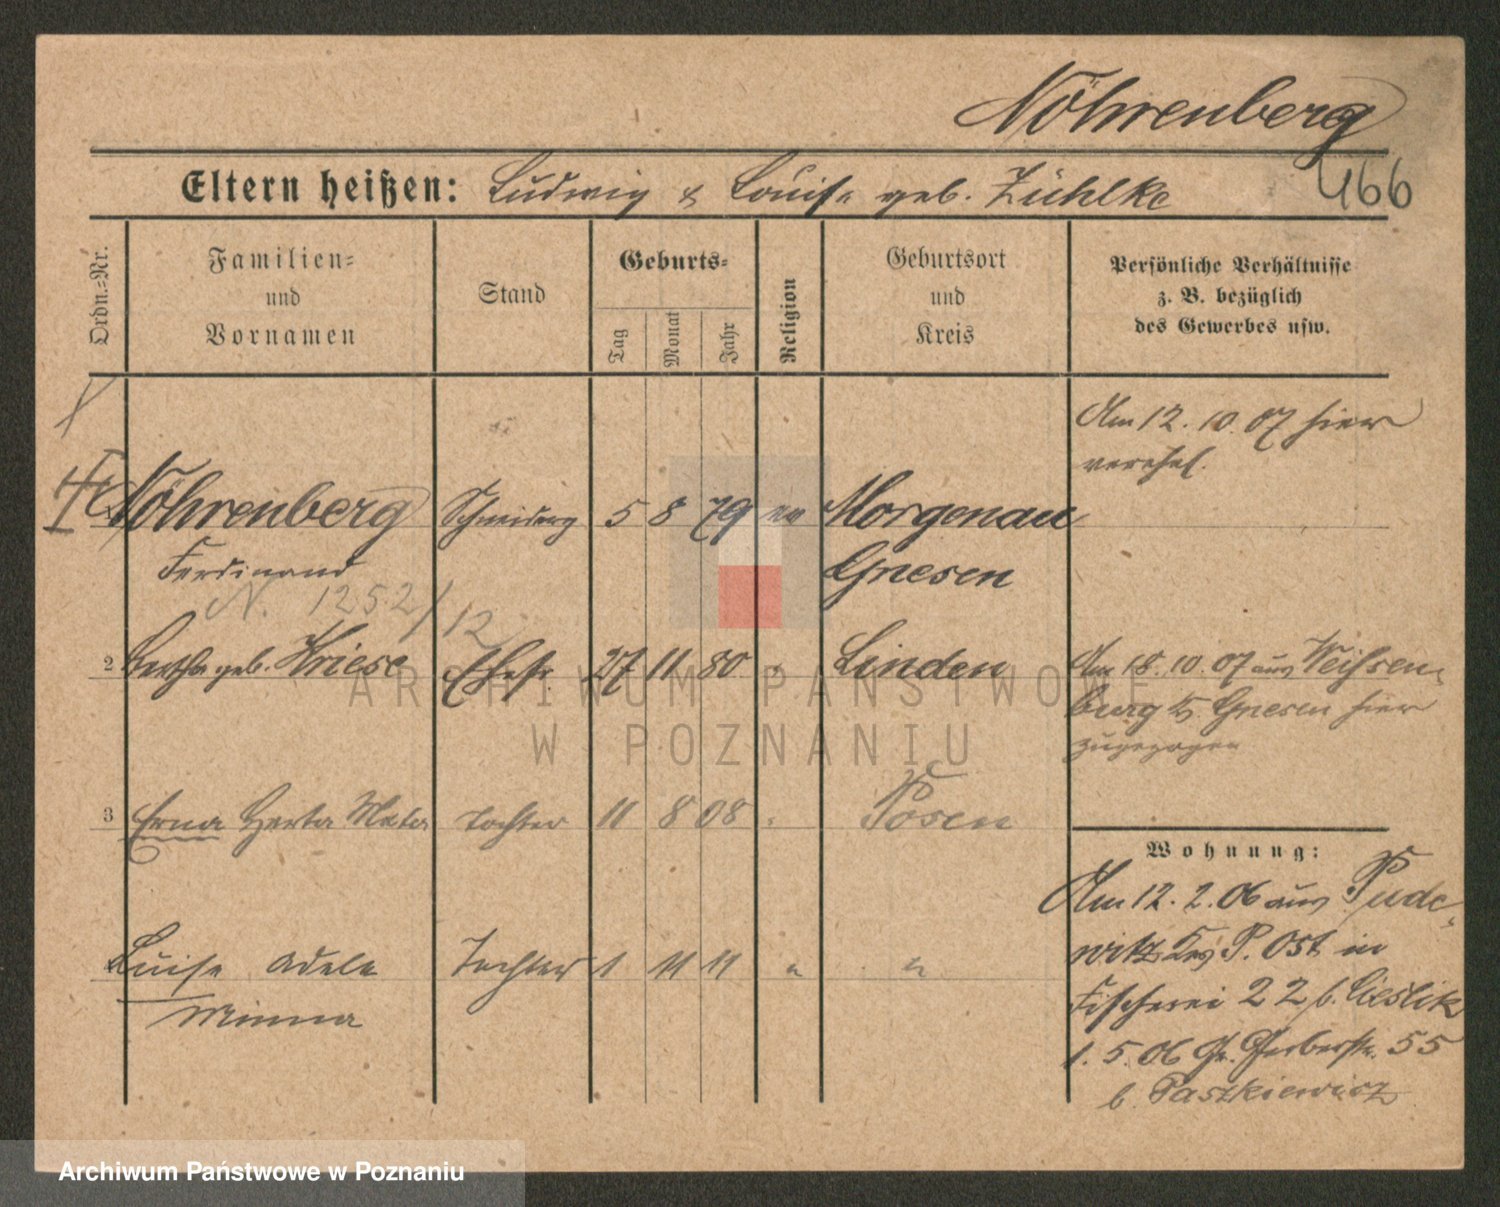 Nöhrenberg
466
Eltern heißen: Ludwig & Louise geb. Zühlke
Ordn.-Nr.
Familien- und Vornamen
Stand
Geburts-
Tag Monat Jahr
Religion
Geburtsort und Kreis
Persönliche Verhältnisse
z. B. bezüglich
des Gewerbes usw.
Am 12. 10. 07 hier
verehel.
Nöhrenberg 5 8 79 ev Morgenau
Ferdinand Gnesen
N. 1252/12
2 Bertha geb. Kriese Ehefr. 27 11 80 Linden
Am 18. 10. 07 aus Weissen-
burg Gnesen hier
zugezogen
3 Erna Herta Meta Tochter 11 8 08 Posen
Wohnung:
Am 12. 2. 06 aus Pude-
witz Krs P. Ost in
Luise Adele Tochter 1 11 11 " "
Minna
Fischerei 22 b. Cieslik
1. 5. 06 Gr. Gerberstr. 55
b. Paszkiewicz
ARCHIWUM PAŃSTWOWE
W POZNANIU
Archiwum Państwowe w Poznaniu